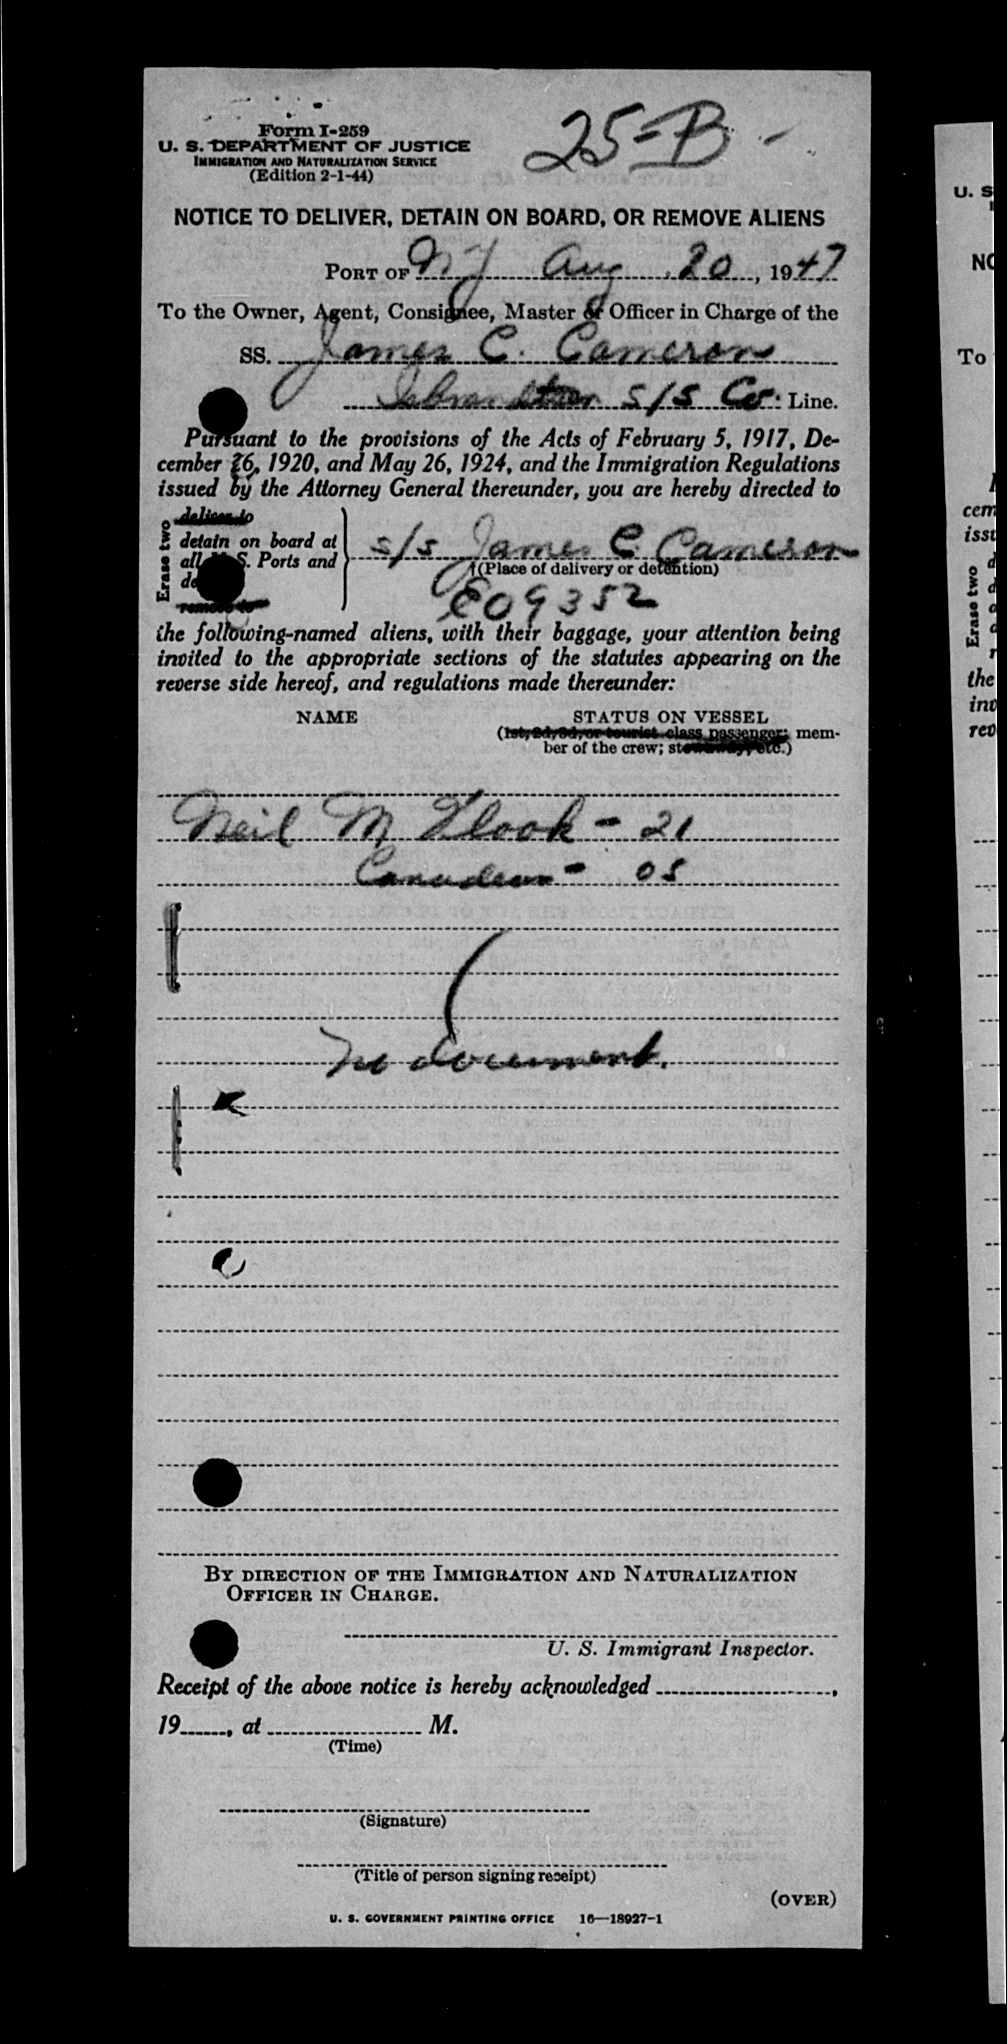 25-B-
Form I-259
U. S. DEPARTMENT OF JUSTICE
IMMIGRATION AND NATURALIZATION SERVICE
(Edition 2-1-44)
NOTICE TO DELIVER, DETAIN ON BOARD, OR REMOVE ALIENS
PORT OF NY Aug 20, 1947
To the Owner, Agent, Consignee, Master or Officer in Charge of the
SS. James C. Cameron
S/S Co. Line.
Pursuant to the provisions of the Acts of February 5, 1917, De-
cember 26, 1920, and May 26, 1924, and the Immigration Regulations
issued by the Attorney General thereunder, you are hereby directed to
Erase two
deliver to
detain on board at
all U. S. Ports and
remove to
S/S James C. Cameron
(Place of delivery or detention)
E09352
the following-named aliens, with their baggage, your attention being
invited to the appropriate sections of the statutes appearing on the
reverse side hereof, and regulations made thereunder:
NAME STATUS ON VESSEL
(1st, 2d, 3d, or tourist class passenger; mem-
ber of the crew; stowaway, etc.)
Neil M Flook - 21
Canadian - OS
No document.
BY DIRECTION OF THE IMMIGRATION AND NATURALIZATION
OFFICER IN CHARGE.
U. S. Immigrant Inspector.
Receipt of the above notice is hereby acknowledged ,
19 , at M.
(Time)
(Signature)
(Title of person signing receipt)
(OVER)
U. S. GOVERNMENT PRINTING OFFICE 16—18927-1
U. S.
NO
To
cem
issu
Erase two
the
inv
rev